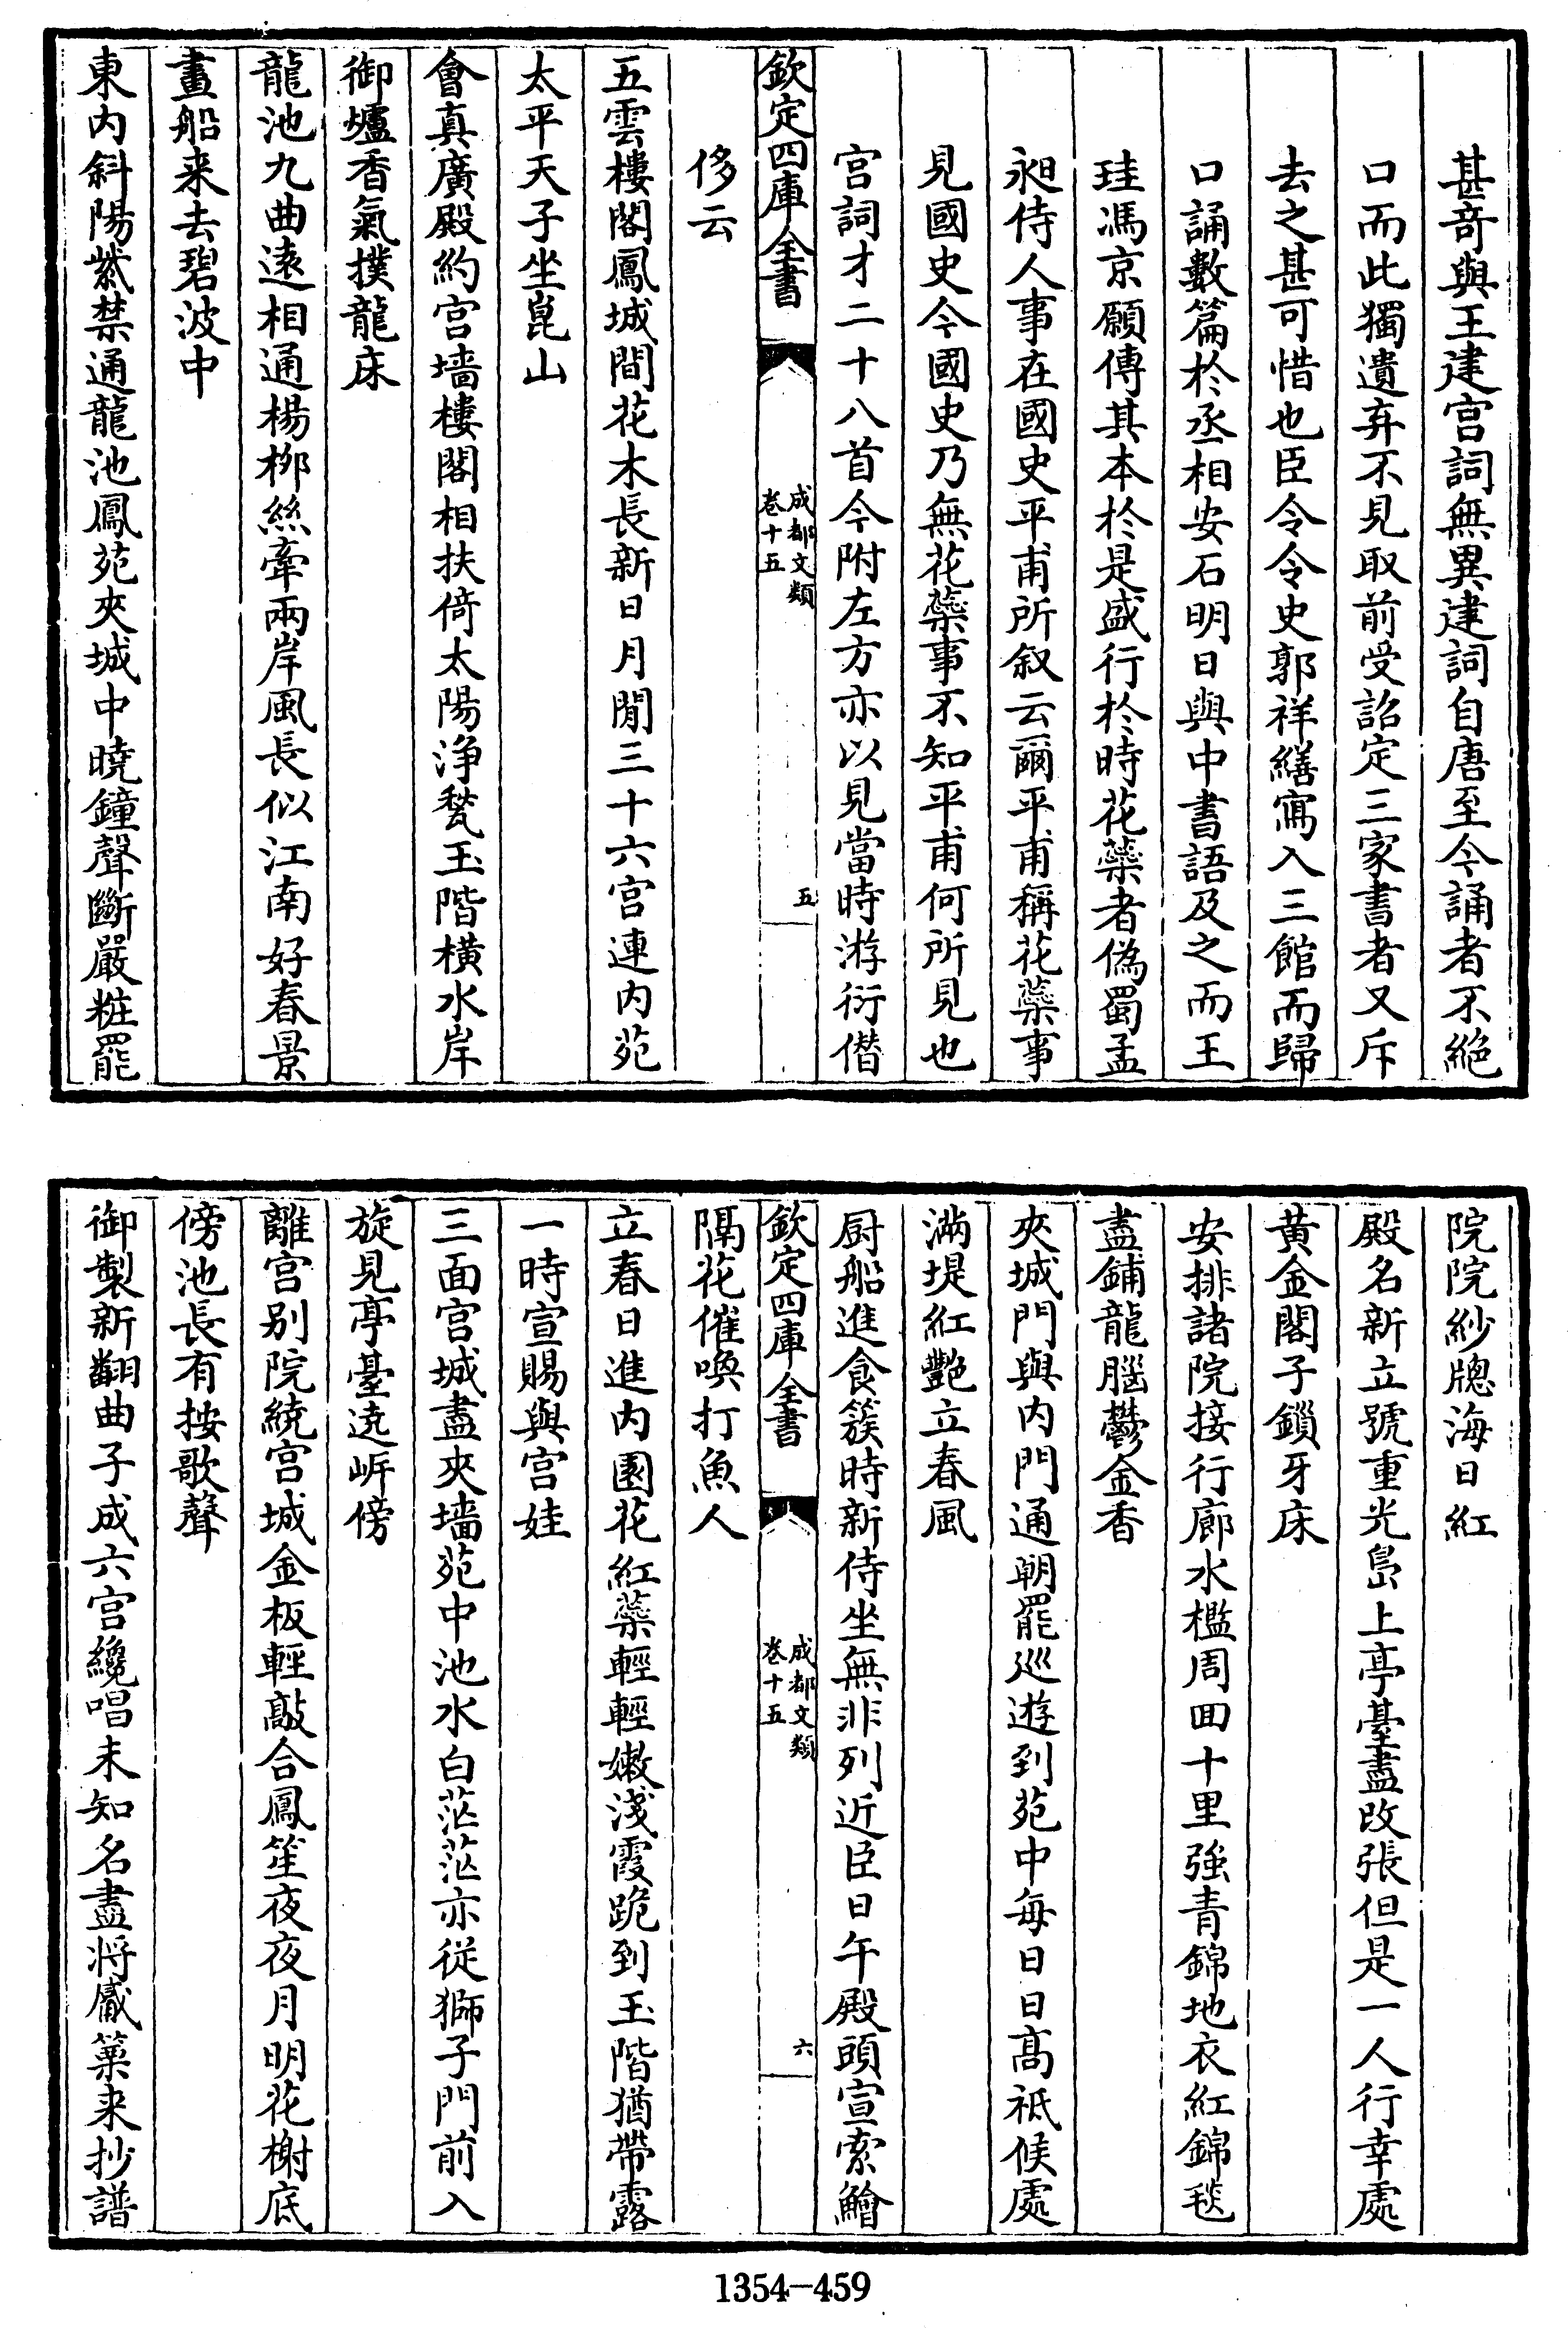 甚竒與王建宫詞無異建詞自唐至今誦者不絶
口而此獨遺弃不見取前受詔定三家書者又斥
去之甚可惜也臣令令史郭祥繕寫入三館而歸
口誦數篇於丞相安石明日與中書語及之而王
珪馮京願傳其本於是盛行於時花蘂者偽蜀孟
昶侍人事在國史平甫所叙云爾平甫稱花蘂事
見國史今國史乃無花蘂事不知平甫何所見也
宫詞才二十八首今附左方亦以見當時游衍僭
欽定四庫全書
成都文類
卷十五
五
侈云
五雲樓閣鳳城間花木長新日月閒三十六宫連内苑
太平天子坐崑山
會真廣殿約宫墻樓閣相扶倚太陽浄甃玉階橫水岸
御爐香氣撲龍床
龍池九曲逺相通楊桞絲牽兩岸風長似江南好春景
畫船来去碧波中
東内斜陽紫禁通龍池鳳苑夾城中曉鐘聲斷嚴粧罷
院院紗牎海日紅
殿名新立號重光㠀上亭臺盡改張但是一人行幸處
黄金閣子鎻牙床
安排諸院接行廊水檻周囬十里強青錦地衣紅錦毯
盡鋪龍腦鬱金香
夾城門與内門通朝罷廵遊到苑中每日日髙祗候處
滿堤紅艷立春風
厨船進食簇時新侍坐無非列近臣日午殿頭宣索鱠
欽定四庫全書
成都文類
卷十五
六
隔花催喚打魚人
立春日進内園花紅蘂輕輕嫩淺霞跪到玉階猶帶露
一時宣賜與宫娃
三面宫城盡夾墻苑中池水白茫茫亦從獅子門前入
旋見亭臺遶岍傍
離宫别院繞宫城金板輕敲合鳳笙夜夜月明花榭底
傍池長有按歌聲
御製新翻曲子成六宫纔唱未知名盡将觱篥来抄譜
1354-459